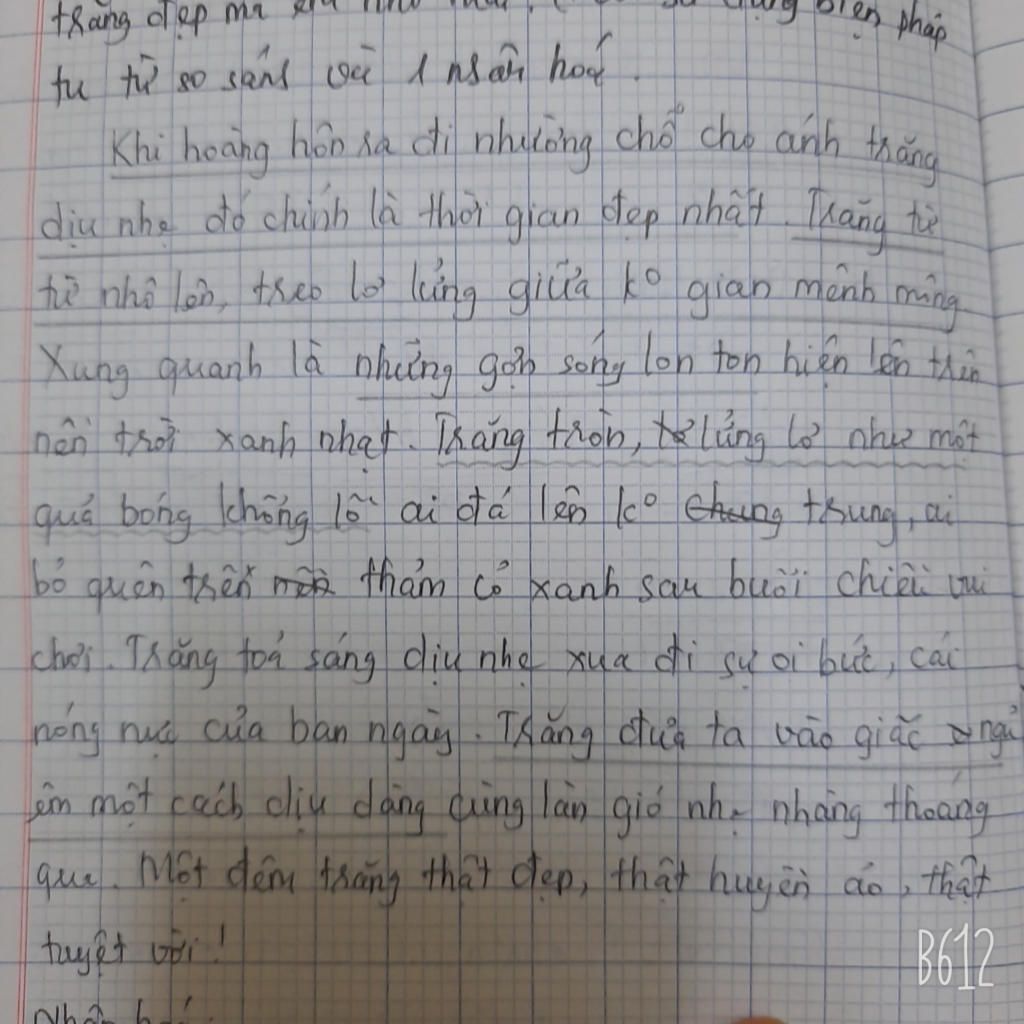 trăng đẹp mà em biện pháp
tu từ so sánh và 1 nhân hoá.
Khi hoàng hôn ra đi nhường chỗ cho ánh trăng
dịu nhẹ đó chính là thời gian đẹp nhất. Trăng từ
từ nhô lên, treo lơ lửng giữa ko gian mênh mông
Xung quanh là những gợn sóng lon ton hiện lên trên
nền trời xanh nhạt. Trăng tròn, lửng lơ như một
quả bóng khổng lồ ai đá lên ko chung trung, ai
bỏ quên trên thảm cỏ xanh sau buổi chiều vui
chơi. Trăng toả sáng dịu nhẹ xua đi sự oi bức, cái
nóng nực của ban ngày. Trăng đưa ta vào giấc ngủ
êm một cách dịu dàng cùng làn gió nhẹ nhàng thoáng
qua. Một đêm trăng thật đẹp, thật huyền ảo, thật
tuyệt vời!
B612